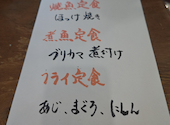 焼魚定食
ほっけ焼き
煮魚定食
ブリカマ煮付け
フライ定食
あじ、まぐろ、にしん